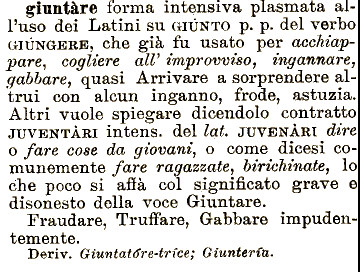 giuntàre forma intensiva plasmata al-
l'uso dei Latini su GIÙNTO p. p. del verbo
GIÙNGERE, che già fu usato per acchiap-
pare, cogliere all' improvviso, ingannare,
gabbare, quasi Arrivare a sorprendere al-
trui con alcun inganno, frode, astuzia.
Altri vuole spiegare dicendolo contratto
JUVENTÀRI intens. del lat. JUVENÀRI dire
o fare cose da giovani, o come dicesi co-
munemente fare ragazzate, birichinate, lo
che poco si affà col significato grave e
disonesto della voce Giuntare.
Fraudare, Truffare, Gabbare impuden-
temente.
Deriv. Giuntatóre-trìce; Giunterìa.